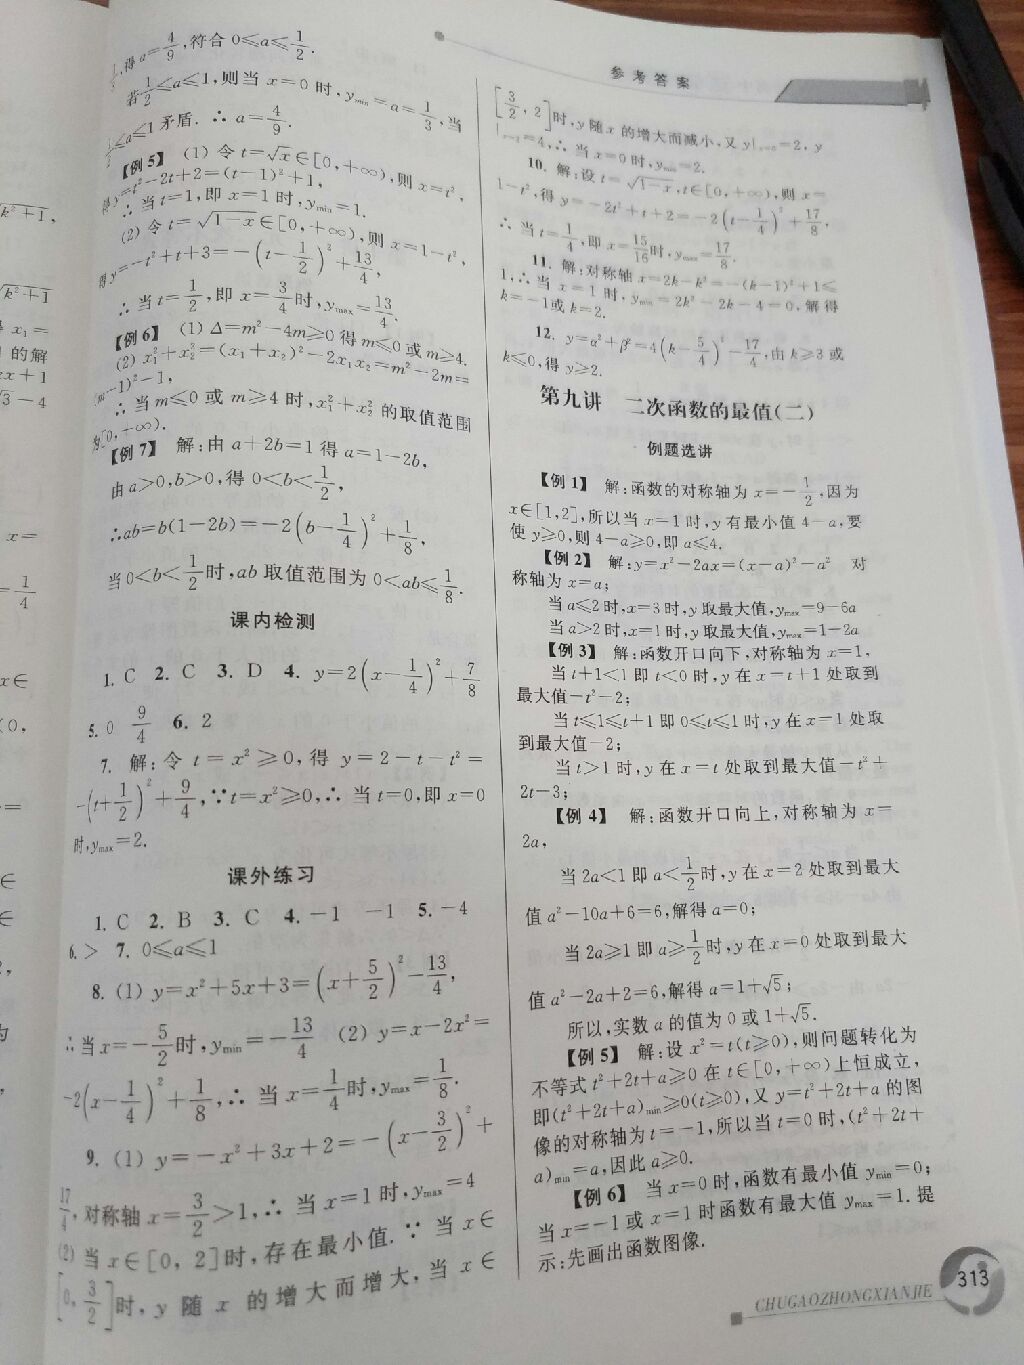 参考答案
得a=4/9,符合0≤a≤1/2.
若1/2<a≤1,则当x=0时,ymin=a=1/3,当
1/2<a≤1矛盾.∴a=4/9.
【例5】 (1)令t=√x∈[0,+∞),则x=t²,
得y=t²-2t+2=(t-1)²+1,
∴当t=1,即x=1时,ymin=1.
(2)令t=√(1-x)∈[0,+∞),则x=1-t²,
得y=-t²+t+3=-(t-1/2)²+13/4,
∴当t=1/2,即x=3/4时,ymax=13/4.
【例6】 (1)Δ=m²-4m≥0得m≤0或m≥4.
(2)x₁²+x₂²=(x₁+x₂)²-2x₁x₂=m²-2m=
(m-1)²-1,
∴当m≤0或m≥4时,x₁²+x₂²的取值范围
为[0,+∞).
【例7】 解:由a+2b=1得a=1-2b,
由a>0,b>0,得0<b<1/2,
∴ab=b(1-2b)=-2(b-1/4)²+1/8,
当0<b<1/2时,ab取值范围为0<ab≤1/8.
课内检测
1. C 2. C 3. D 4. y=2(x-1/4)²+7/8
5. 0 9/4 6. 2
7. 解:令t=x²≥0,得y=2-t-t²=
-(t+1/2)²+9/4,∵t=x²≥0,∴当t=0,即x=0
时,ymax=2.
课外练习
1. C 2. B 3. C 4. -1 -1 5. -4
6. > 7. 0≤a≤1
8. (1) y=x²+5x+3=(x+5/2)²-13/4,
∴当x=-5/2时,ymin=-13/4 (2) y=x-2x²=
-2(x-1/4)²+1/8,∴当x=1/4时,ymax=1/8.
9. (1) y=-x²+3x+2=-(x-3/2)²+
17/4,对称轴x=3/2>1,∴当x=1时,ymax=4
(2)当x∈[0,2]时,存在最小值.∵当x∈
[0,3/2]时,y随x的增大而增大,当x∈
[3/2,2]时,y随x的增大而减小,又y|x=0=2,y
|x=2=4,∴当x=0时,ymin=2.
10. 解:设t=√(1-x),t∈[0,+∞),则x=
1-t²,得y=-2t²+t+2=-2(t-1/4)²+17/8,
∴当t=1/4,即x=15/16时,ymax=17/8.
11. 解:对称轴x=2k-k²=-(k-1)²+1≤
1,∴当x=1时,ymin=2k²-2k-4=0,解得
k=-1或k=2.
12. y=α²+β²=4(k-5/4)²-17/4,由k≥3或
k≤0,得y≥2.
第九讲 二次函数的最值(二)
例题选讲
【例1】 解:函数的对称轴为x=-1/2,因为
x∈[1,2],所以当x=1时,y有最小值4-a,要
使y≥0,则4-a≥0,即a≤4.
【例2】 解:y=x²-2ax=(x-a)²-a² 对
称轴为x=a;
当a≤2时,x=3时,y取最大值,ymax=9-6a
当a>2时,x=1时,y取最大值,ymax=1-2a
【例3】 解:函数开口向下,对称轴为x=1,
当t+1<1即t<0时,y在x=t+1处取到
最大值-t²-2;
当t≤1≤t+1即0≤t≤1时,y在x=1处取
到最大值-2;
当t>1时,y在x=t处取到最大值-t²+
2t-3;
【例4】 解:函数开口向上,对称轴为x=
2a,
当2a<1即a<1/2时,y在x=2处取到最大
值a²-10a+6=6,解得a=0;
当2a≥1即a≥1/2时,y在x=0处取到最大
值a²-2a+2=6,解得a=1+√5;
所以,实数a的值为0或1+√5.
【例5】 解:设x²=t(t≥0),则问题转化为
不等式t²+2t+a≥0在t∈[0,+∞)上恒成立,
即(t²+2t+a)min≥0(t≥0),又y=t²+2t+a的图
像的对称轴为t=-1,所以当t=0时,(t²+2t+
a)min=a,因此a≥0.
【例6】 当x=0时,函数有最小值ymin=0;
当x=-1或x=1时函数有最大值ymax=1.提
示:先画出函数图像.
CHUGAOZHONGXIANJIE
313